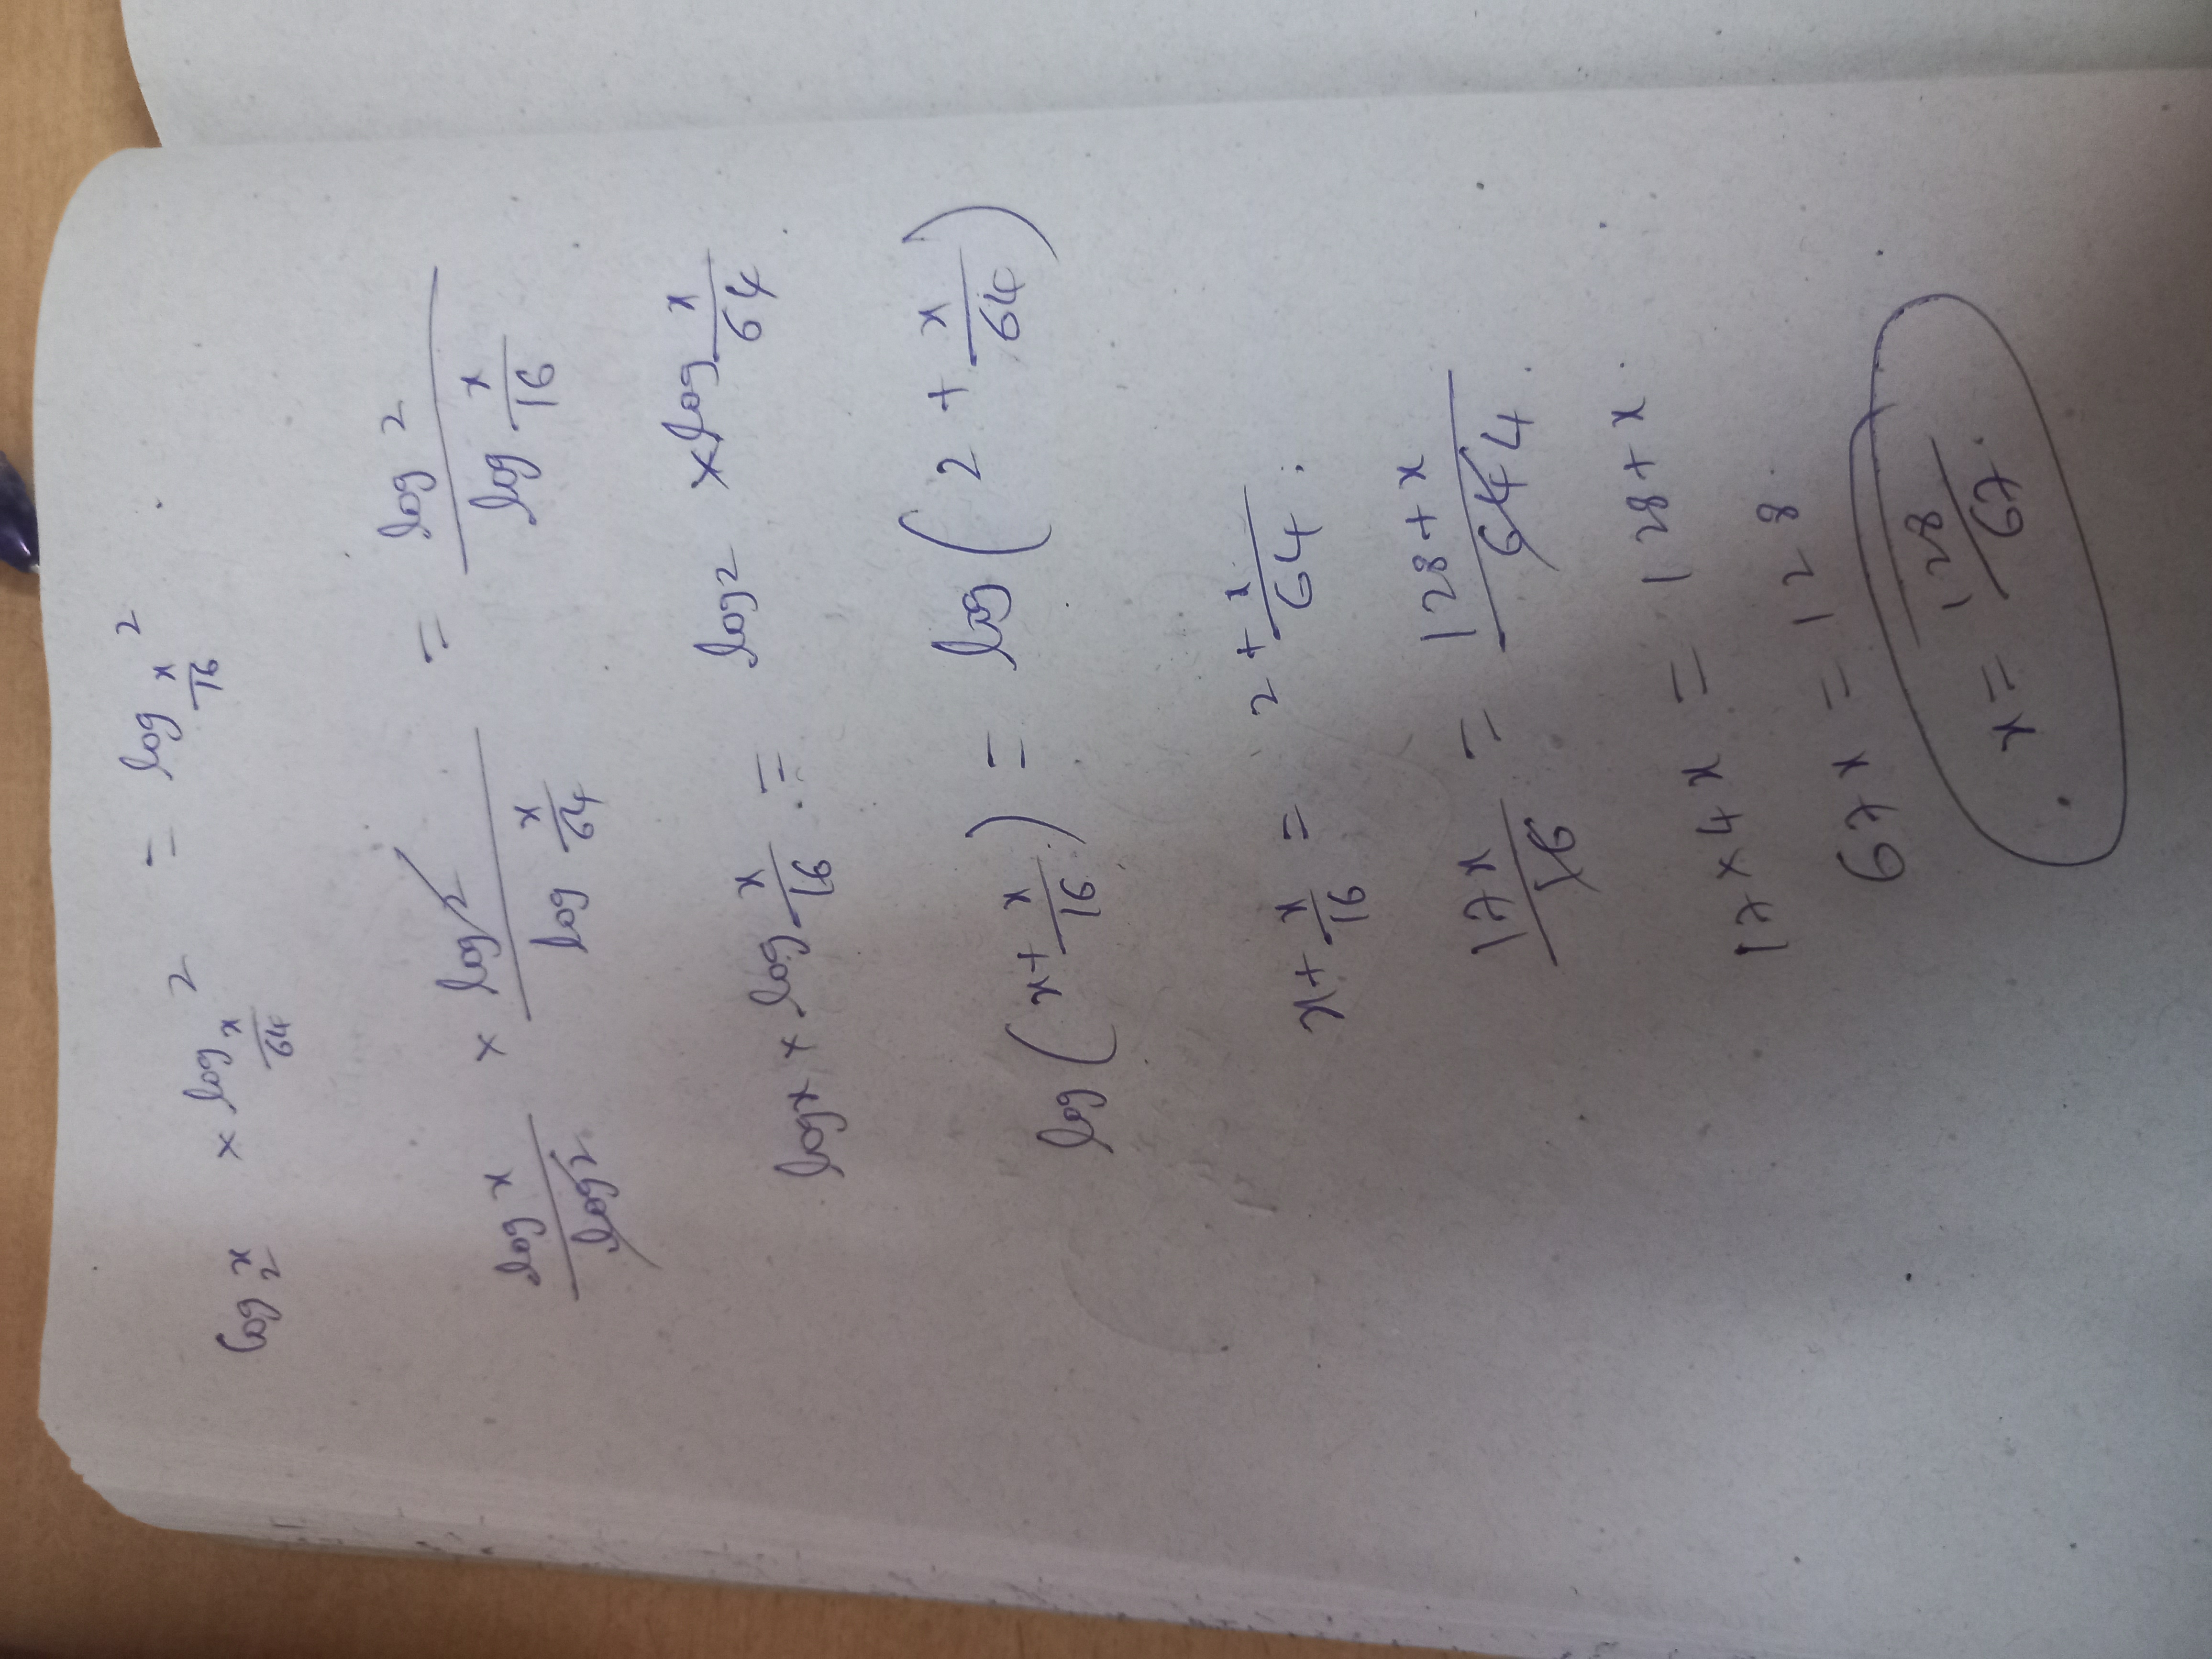 log₂ x × log_(x/64) 2 = log_(x/16) 2
log x / log 2 × log 2 / log (x/64) = log 2 / log (x/16)
log x × log x/16 = log 2 × log x/64
log (x + x/16) = log (2 + x/64)
x + x/16 = 2 + x/64
17x/16 = 128 + x / 64 4
17 × 4x = 128 + x
67x = 128
x = 128/67